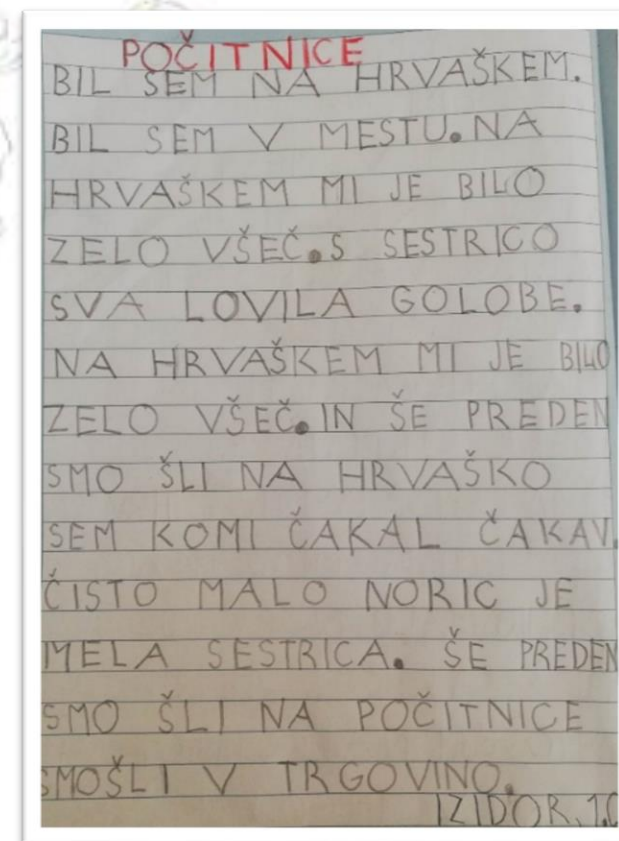 POČITNICE
BIL SEM NA HRVAŠKEM.
BIL SEM V MESTU. NA
HRVAŠKEM MI JE BILO
ZELO VŠEČ. S SESTRICO
SVA LOVILA GOLOBE.
NA HRVAŠKEM MI JE BILO
ZELO VŠEČ. IN ŠE PREDEN
SMO ŠLI NA HRVAŠKO
SEM KOMI ČAKAL ČAKAV.
ČISTO MALO NORIC JE
MELA SESTRICA. ŠE PREDEN
SMO ŠLI NA POČITNICE
SMOŠLI V TRGOVINO.
IZIDOR, 1.C